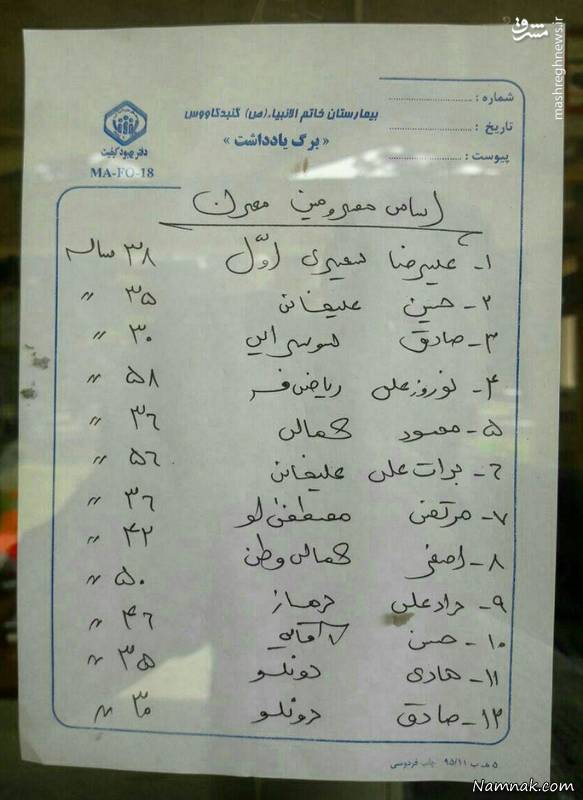 مشرق
mashreghnews.ir
شماره :
بیمارستان خاتم الانبیاء (ص) گنبدکاووس
تاریخ :
« برگ یادداشت »
پیوست :
دفتر بهبود کیفیت
MA-FO-18
اسامی مصدومین معدن
۱- علیرضا نصیری اوّل ۳۸ ساله
۲- حسین علیخانی ۳۵ "
۳- صادق ۳۰ "
۴- نوروزعلی ریاضی فر ۵۸ "
۵- مسعود کمالی ۳۶ "
۶- برات علی علیخانی ۵۶ "
۷- مرتضی مصطفی لو ۳۶ "
۸- اصغر کمالی وطن ۴۲ "
۹- مرادعلی ۵۰ "
۱۰- حسن آقایی ۴۶ "
۱۱- هادی دونلو ۳۵ "
۱۲- صادق دونلو ۳۰ "
۵ ه‍.ب ۹۵/۱۱ چاپ فردوسی
Namnak.com